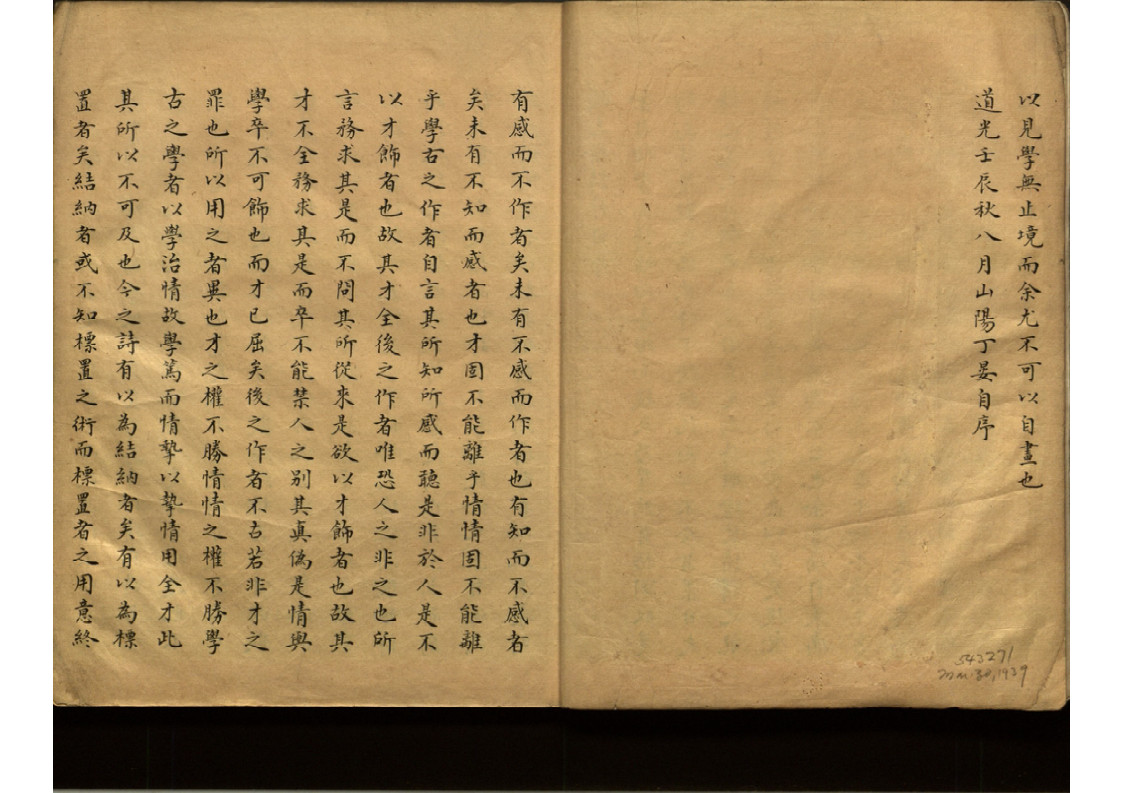 以見學無止境而余尤不可以自畫也
道光壬辰秋八月山陽丁晏自序
543271
Mar. 30, 1939
有感而不作者矣未有不感而作者也有知而不感者
矣未有不知而感者也才固不能離乎情情固不能離
乎學古之作者自言其所知所感而聽是非於人是不
以才飾者也故其才全後之作者唯恐人之非之也所
言務求其是而不問其所從來是欲以才飾者也故其
才不全務求其是而卒不能禁人之別其真偽是情與
學卒不可飾也而才已屈矣後之作者不古若非才之
罪也所以用之者異也才之權不勝情情之權不勝學
古之學者以學治情故學篤而情摯以摯情用全才此
其所以不可及也今之詩有以為結納者矣有以為標
置者矣結納者或不知標置之術而標置者之用意終